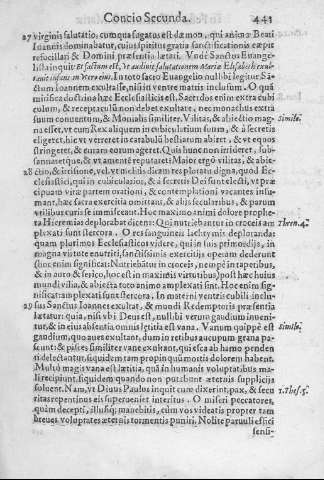 Concio Secunda. 441
27 virginis salutatio, cum qua fugatus est dæmon, qui animæ Beati
Ioannis dominabatur, cuius spiritus gratia sanctificationis cæpit
refocillari & Domini præsentia lætari. Vnde Sanctus Euange-
lista inquit: Et factum est, vt audiuit salutationem Mariæ Elisabeth exul-
tauit infans in vtero eius. In toto sacro Euangelio nullibi legitur San-
ctum Ioannem exultasse, nisi in ventre matris inclusum. O quã
mirifica doctrina hæc Ecclesiasticis est. Sacerdos enim extra cubi
culum, & receptaculũ non debet exultare, nec monachus extra
suum conuentum, & Monialis similiter. Vilitas, & abiectio mag-
na esset, vt cum Rex aliquem in cubicularium suum, & à secretis
eligeret, hic vt verreret in catabulũ bestiarum abiret, & vt equos
stringeret, & curam eorum ageret. Quis hunc non irrideret, sub-
sannaretque, & vt amentẽ reputaret? Maior ergò vilitas, & abie-
28 ctio, & irrisione, vel vt melius dicam res ploratu digna, quod Ec-
clesiastici, qui in cubiculario, & à secretis Dei sunt electi, vt præ
cipuam vitæ partem orationi, & contemplationi vacantes insu-
mant, hæc sacra exercitia omittant, & alijs secularibus, & parum
vtilibus curis se immisceant. Hoc maximo animi dolore prophe-
ta Hieremias deplorabat dicens: Qui nutriebantur in croceis am
plexati sunt stercora. O res sanguineis lachrymis deploranda:
quam plurimos Ecclesiasticos videre, qui in suis primordijs, in
magna virtute enutriti, sanctissimis exercitijs operam dederunt
(hoc enim significat: Nutriebantur in croceis, nempè in taperibus,
& in auro & serico, hoc est in maximis virtutibus) post hæc huius
mundi vilia, & abiecta toto animo amplexati sint. Hoc enim sig-
nificat: amplexati sunt stercora. In materni ventris cubili inclu-
29 sus Sanctus Ioannes exultat, & mundi Redemptoris præsentia
lætatur: quia, nisi vbi Deus est, nullibi verum gaudium inueni-
tur, & in eius absentia omnis lętitia est vana. Vanum quippè est
gaudium, quo aues exultant, dum in retibus aucupum grana pa-
scunt: & pisces similiter vanè exultant, qui esca ab hamo penden
ti delectantur, siquidem tam propinquũ mortis dolorem habent.
Multò magis vana est lætitia, quã in humanis voluptatibus ma-
li recipiunt, siquidem quando non putabunt æternis supplicijs
soluent. Nam, vt Diuus Paulus inquit: cum dixerint, pax, & secu
ritas repentinus eis superueniet interitus. O miseri peccatores,
quàm decepti, illusiq; manebitis, cùm vos videatis propter tam
breues voluptates æternis tormentis puniri. Nolite paruuli effici
sensi-
Simile.
Thren. 4.
Simile.
1. Thes. 5.